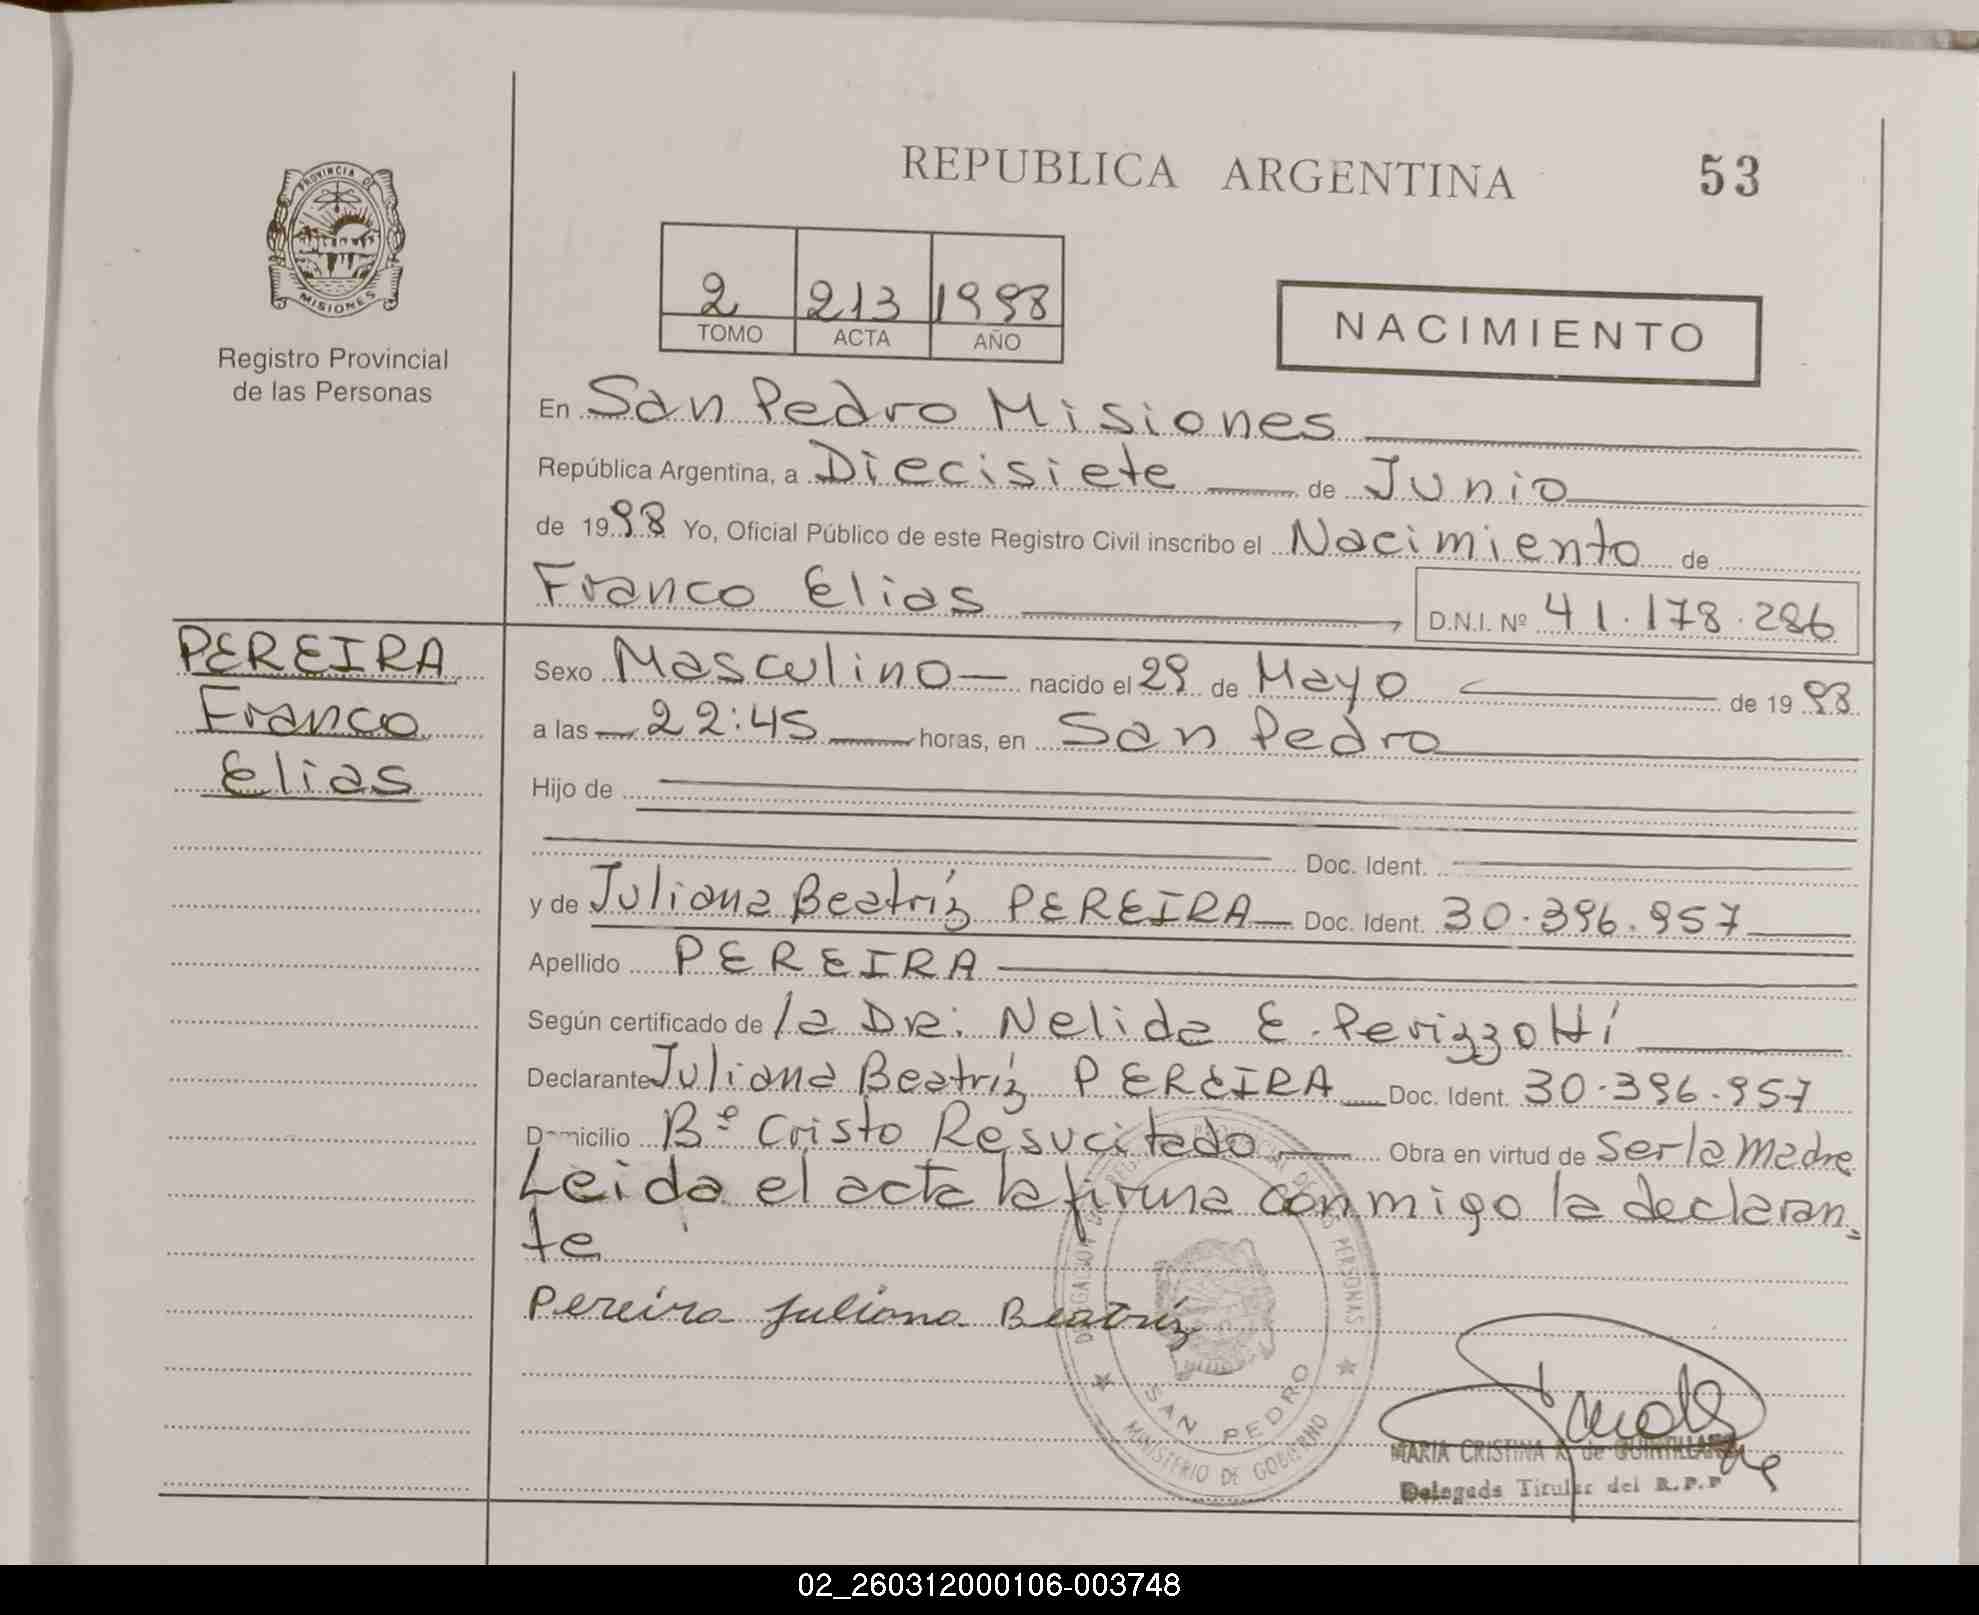 REPUBLICA ARGENTINA
53
PROVINCIA DE
MISIONES
Registro Provincial
de las Personas
2 213 1998
TOMO ACTA AÑO
NACIMIENTO
En San Pedro Misiones
República Argentina, a Diecisiete de Junio
de 1998 Yo, Oficial Público de este Registro Civil inscribo el Nacimiento de
Franco Elias D.N.I. Nº 41.178.286
PEREIRA
Franco
Elias
Sexo Masculino nacido el 29 de Mayo de 1998
a las 22:45 horas, en San Pedro
Hijo de
Doc. Ident.
y de Juliana Beatríz PEREIRA Doc. Ident. 30.396.957
Apellido PEREIRA
Según certificado de la Dra: Nelida E. Perizzotti
Declarante Juliana Beatríz PEREIRA Doc. Ident. 30.396.957
Domicilio Bº Cristo Resucitado Obra en virtud de ser la madre
Leida el acta la firma conmigo la declaran
te
Pereira Juliana Beatríz
PROVINCIAL DE LAS PERSONAS
SAN PEDRO
MINISTERIO DE GOBIERNO
MARIA CRISTINA de
Delegada Titular del R.P.P
02_260312000106-003748